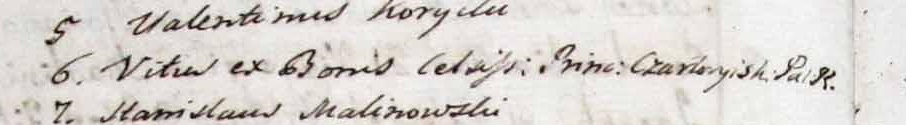 5 Valentinus Korydu
6. Vitus ex Bonis Celsiss: Princ: Czartoryish:
7. Stanislaus Malinowski